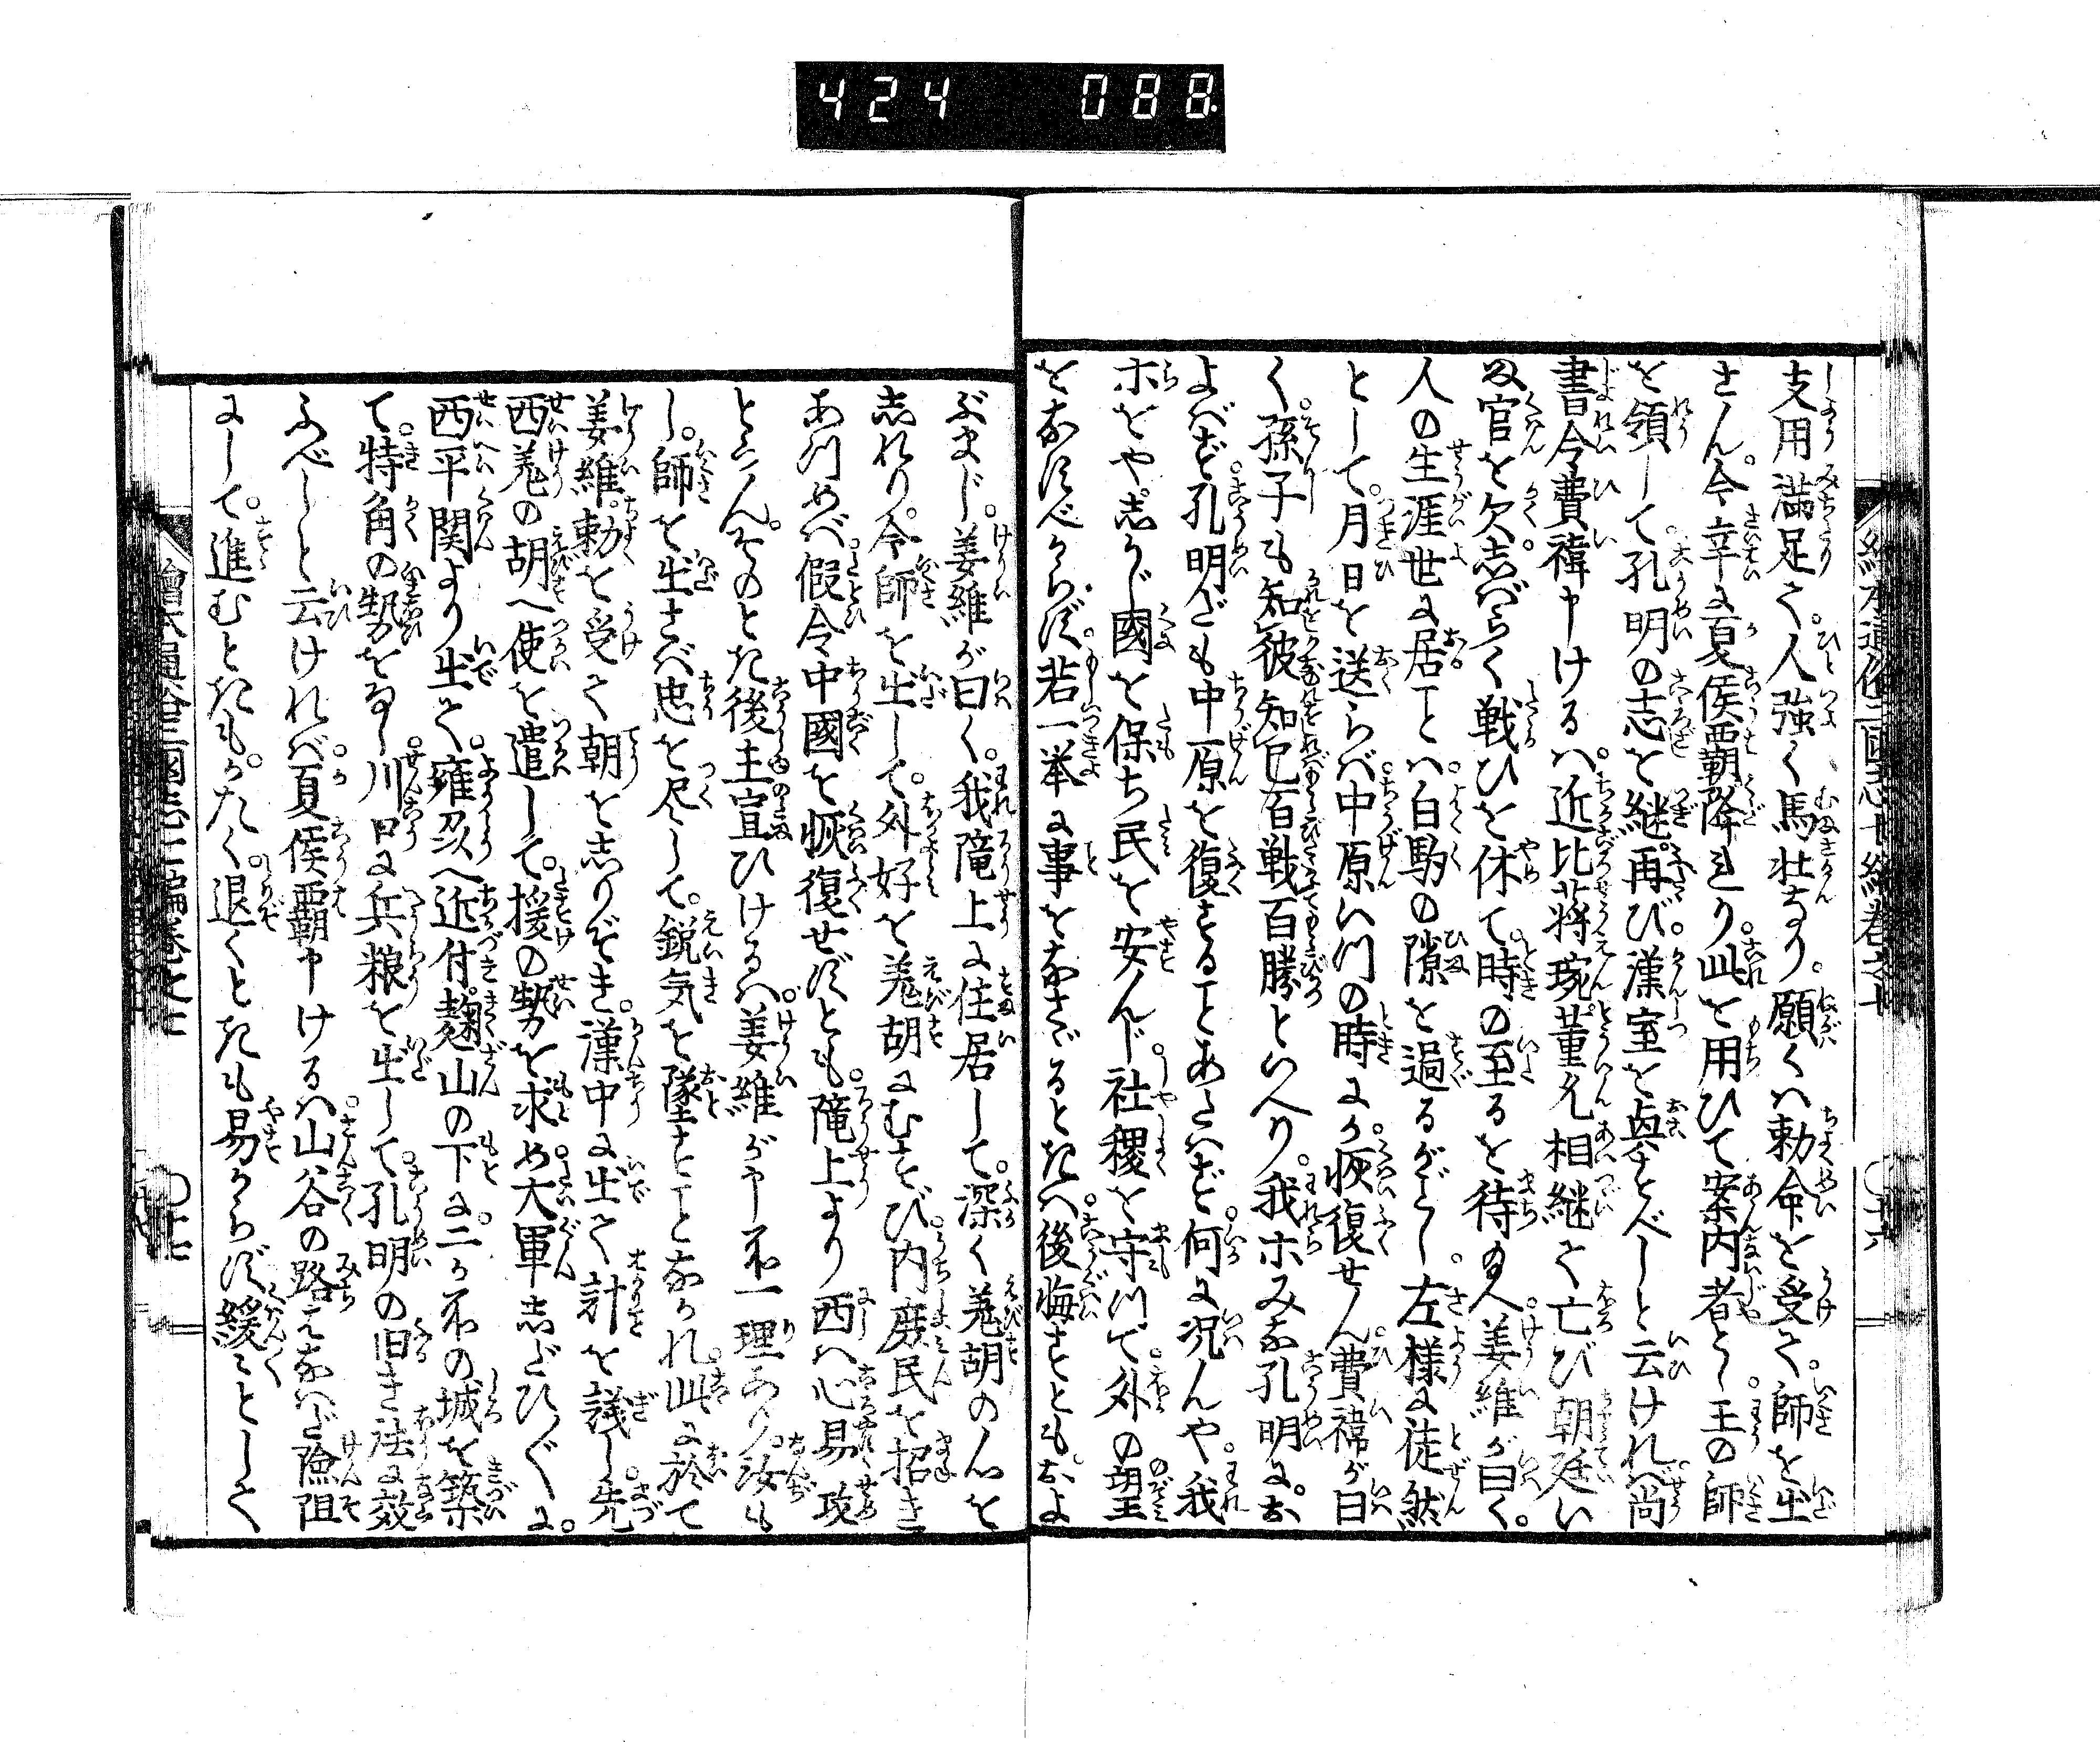 424 088
支用満足て。人強く馬壮なり。願くハ勅命を受て。師を出
さん。今幸に夏侯覇降れり。此を用ひて案内者とし。王の師
を領して。孔明の志を継。再び。漢室を興すべしと云けれバ。尚
書令費禕申けるハ。近比蒋琬。董允相継て亡び朝廷い
官を欠。志バらく戦ひを休て。時の至るを待給へ。姜維が曰く。
人の生涯世に居ことハ。白駒の隙を過るがごとし。左様に徒然
として。月日を送らバ。中原いつの時にか。恢復せん。費禕が曰
く。孫子も知彼知己百戦百勝といへり。我ホみな孔明に。お
よバず。孔明だも中原を復することあたハず。何に況んや。我
ホをや。志かじ國を保ち民を安んじ。社稷を守つて。外の望
をなすべからず。若一挙に事をなさゞるときハ。後悔すとも。およ
ぶまじ。姜維が曰く。我隴上に住居して。深く羌胡の心を
志れり。今師を出して。外好を羌胡にむすび。内庶民を招き
あつめバ。假令中國を恢復せずとも。隴上より西ハ心易攻
とらん。そのとき後主宣ひけるハ。姜維が申第一理あり。汝も
し。師を出さバ忠を尽して。鋭気を墜すことなかれ。此に於て
姜維。勅を受て朝を志りぞき。漢中に出て計を議し。先
西羌の胡へ使を遣して。援の勢を求め。大軍志どひゞくに。
西平関より出て。雍州へ近付。麹山の下に。二ヶ所の城を築
て。特角の勢をなし。川口に兵粮を出して。孔明の旧き法に效
ふべしと云けれバ。夏侯覇申けるハ。山谷の路たゞならバ険阻
にして。進むときも。かたく。退くときも易からず。緩々として
繪本通俗三國志七編巻之十